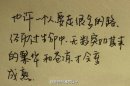 也许一个人要走很多的路
经历过生命中无数突如其来
的繁华和苍凉才会变
成熟